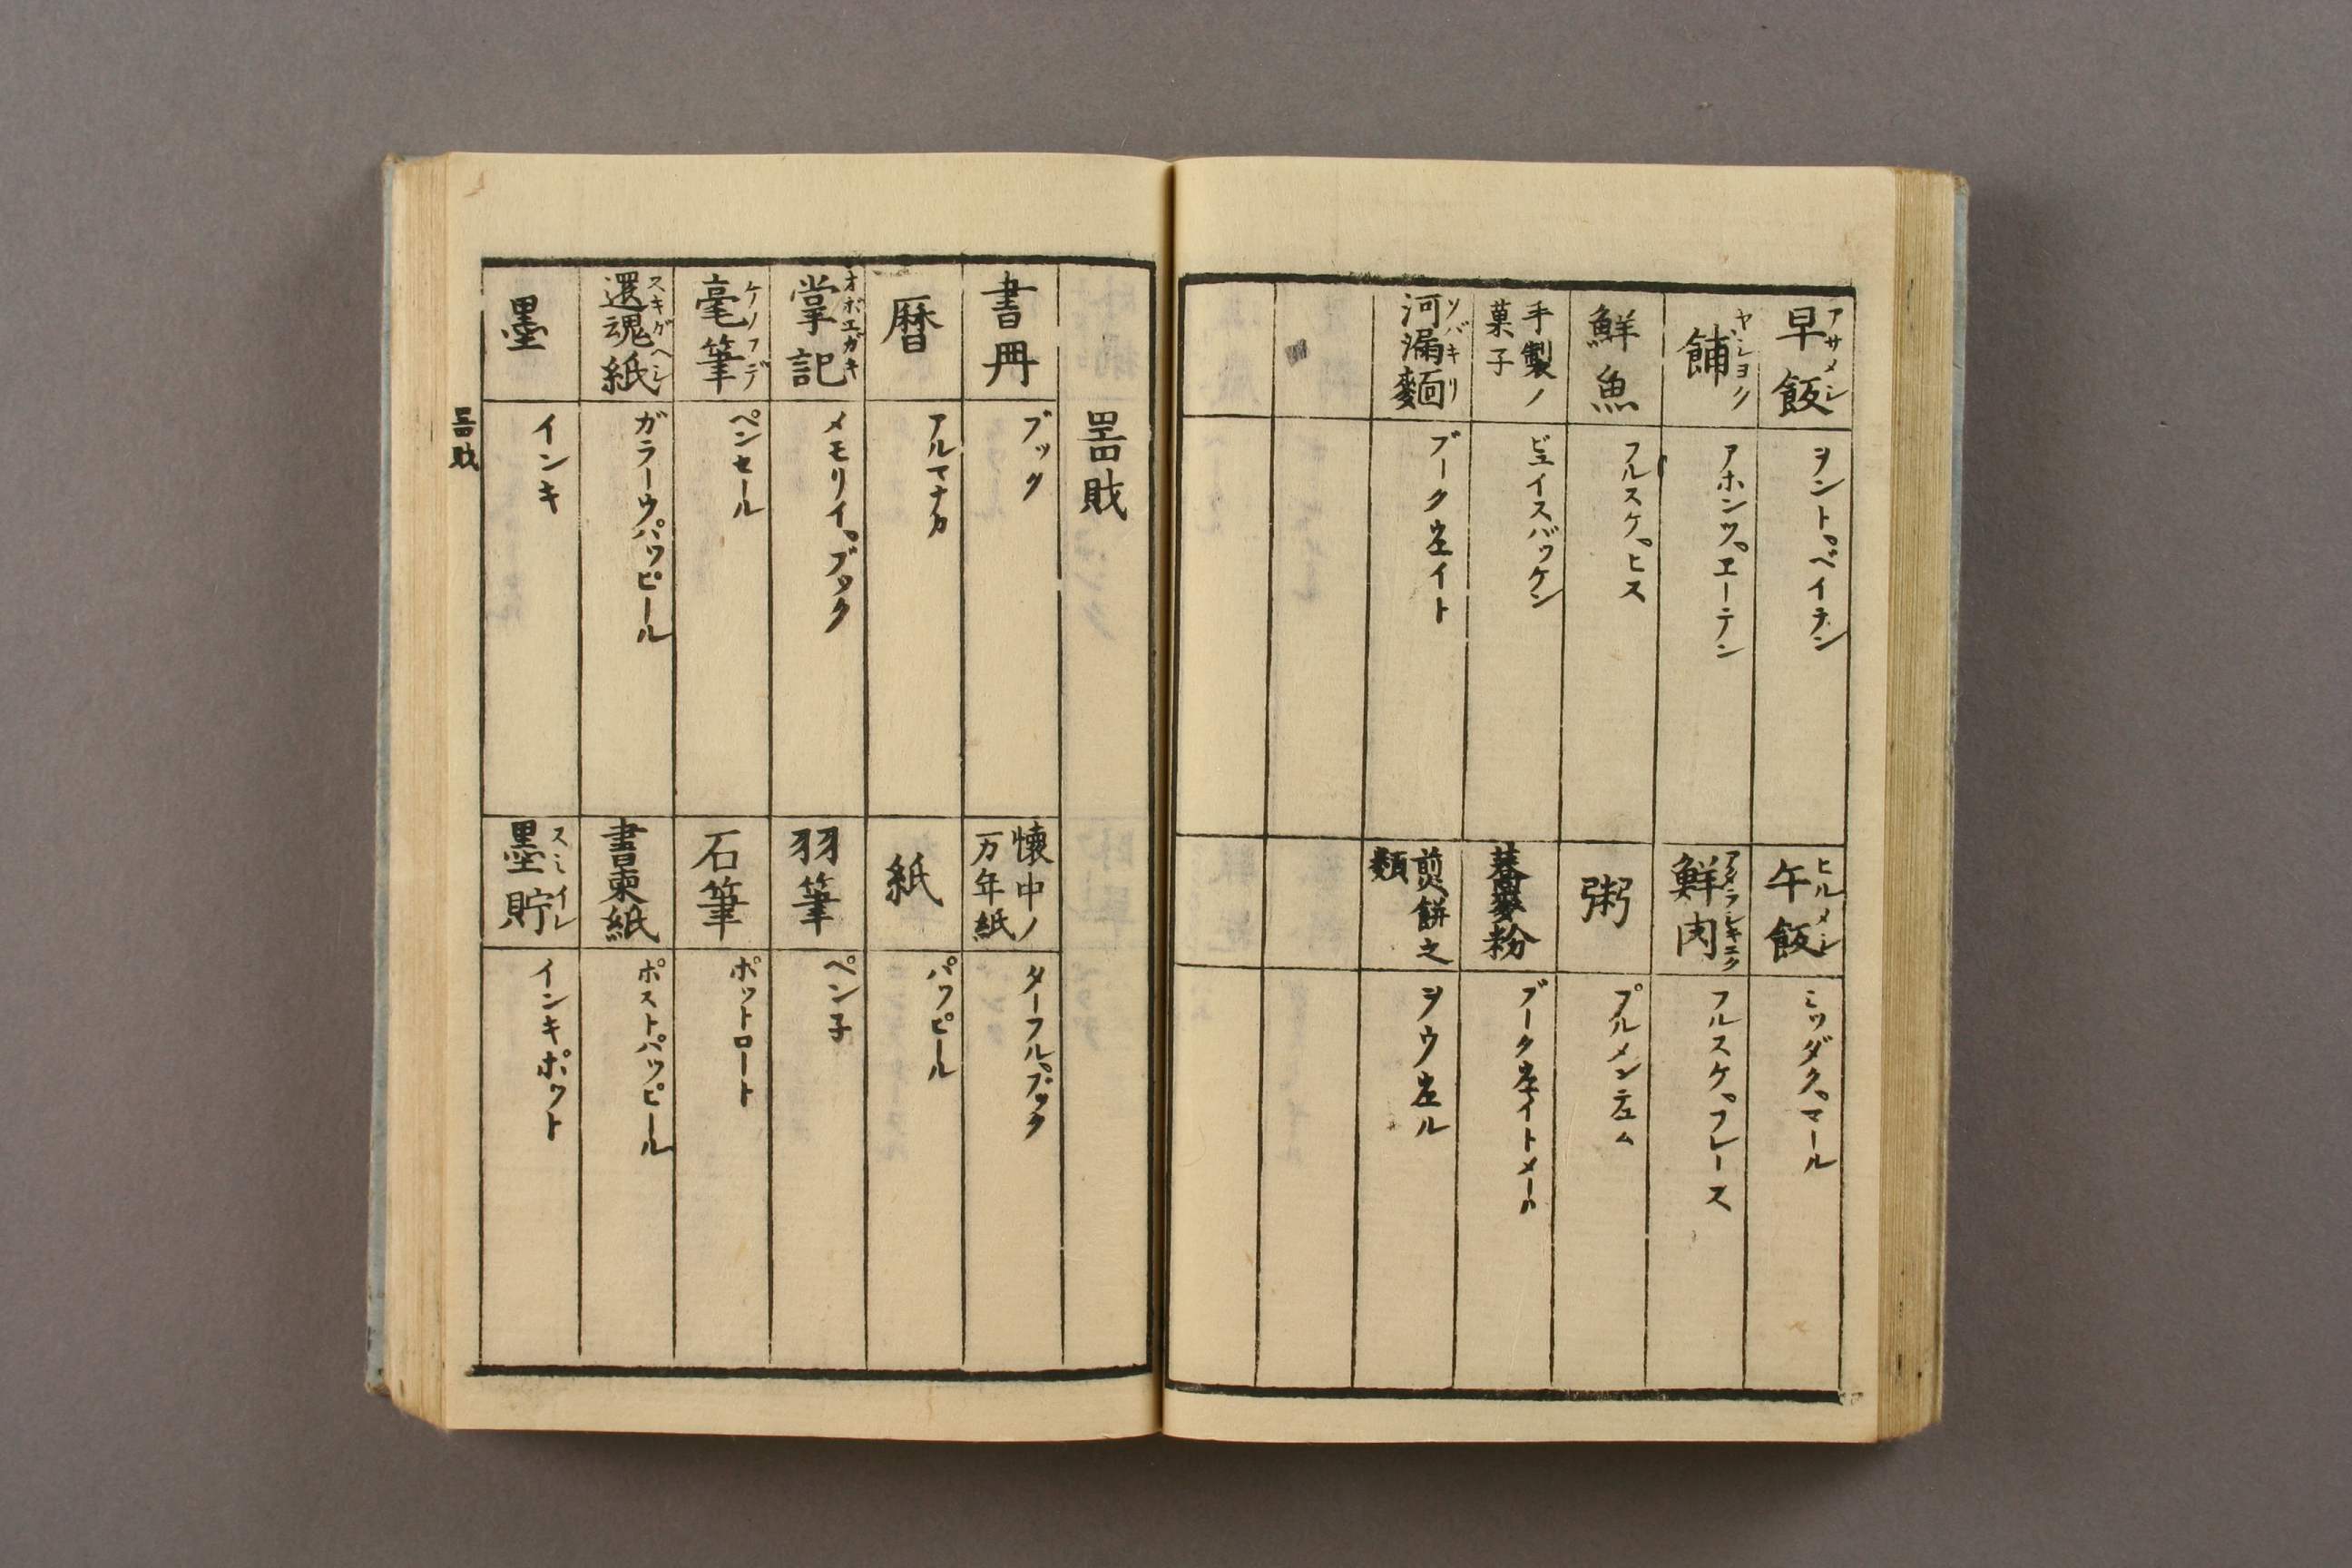 早飯
アサメシ
ヲントベイテン
餔
ヤシヨク
アホンツ、エーテン
鮮魚
フルスケ、ヒス
手製ノ
菓子
ビュイスバッケン
河漏麺
ソバキリ
ブーク左イト
午飯
ヒルメシ
ミッダク、マール
鮮肉
フルスケ、フレース
粥
プルメン左ム
蕎麥粉
ブーク左イトメール
煎餅之
類
ヲウ左ル
噐戝
書冊
ブック
暦
アルマナカ
掌記
オボエガキ
メモリイ、ブック
毫筆
ケノフデ
ペンセール
還魂紙
スキガヘシ
ガラーウパッピール
墨
インキ
懐中ノ
万年紙
ターフル、ブック
紙
パッピール
羽筆
ペン子
石筆
ポットロート
書柬紙
ポストパッピール
墨貯
スミイレ
インキポット
噐戝